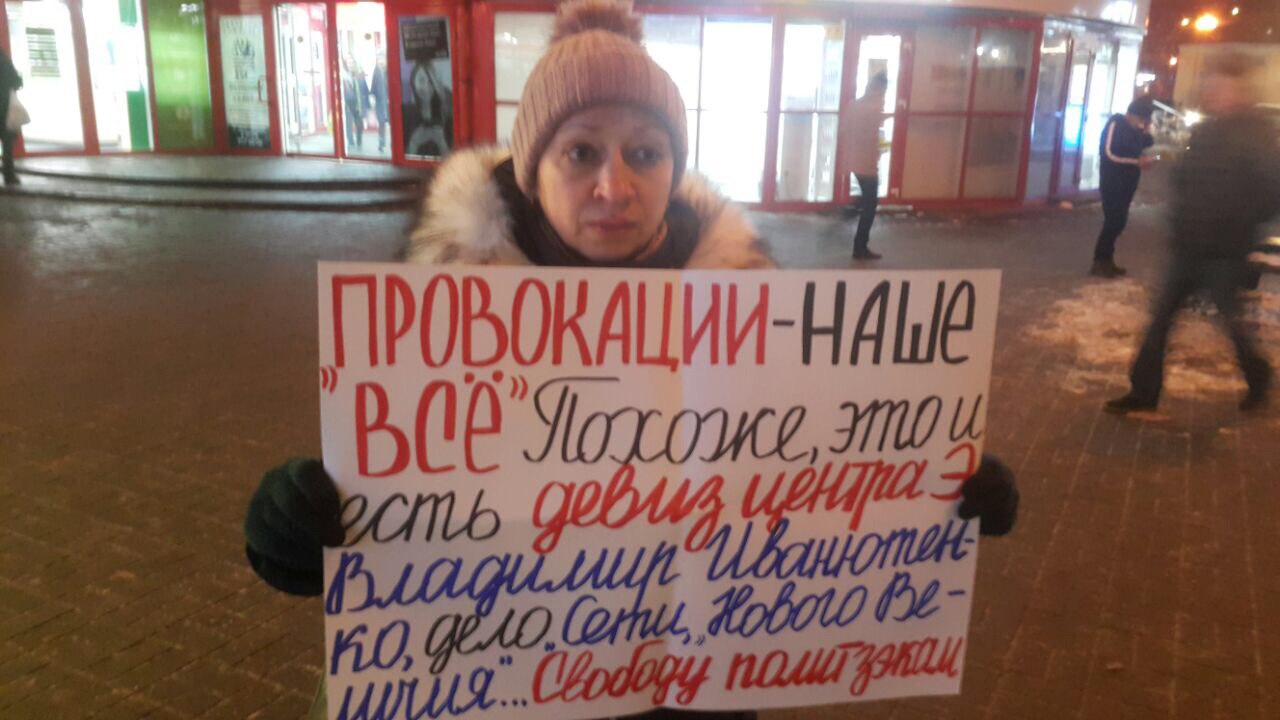 ПРОВОКАЦИИ-НАШЕ
"ВСЁ" Похоже, это и
есть девиз центра Э
Владимир Иванютен-
ко, дело "Сети", "Нового Ве-
личия"... Свободу политзэкам